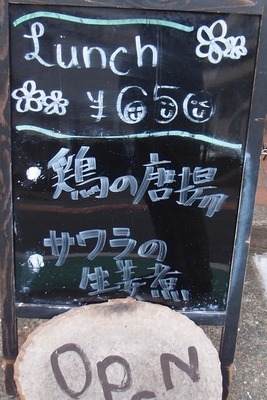 Lunch
¥650
鶏の唐揚
サワラの
生姜煮
OPEN